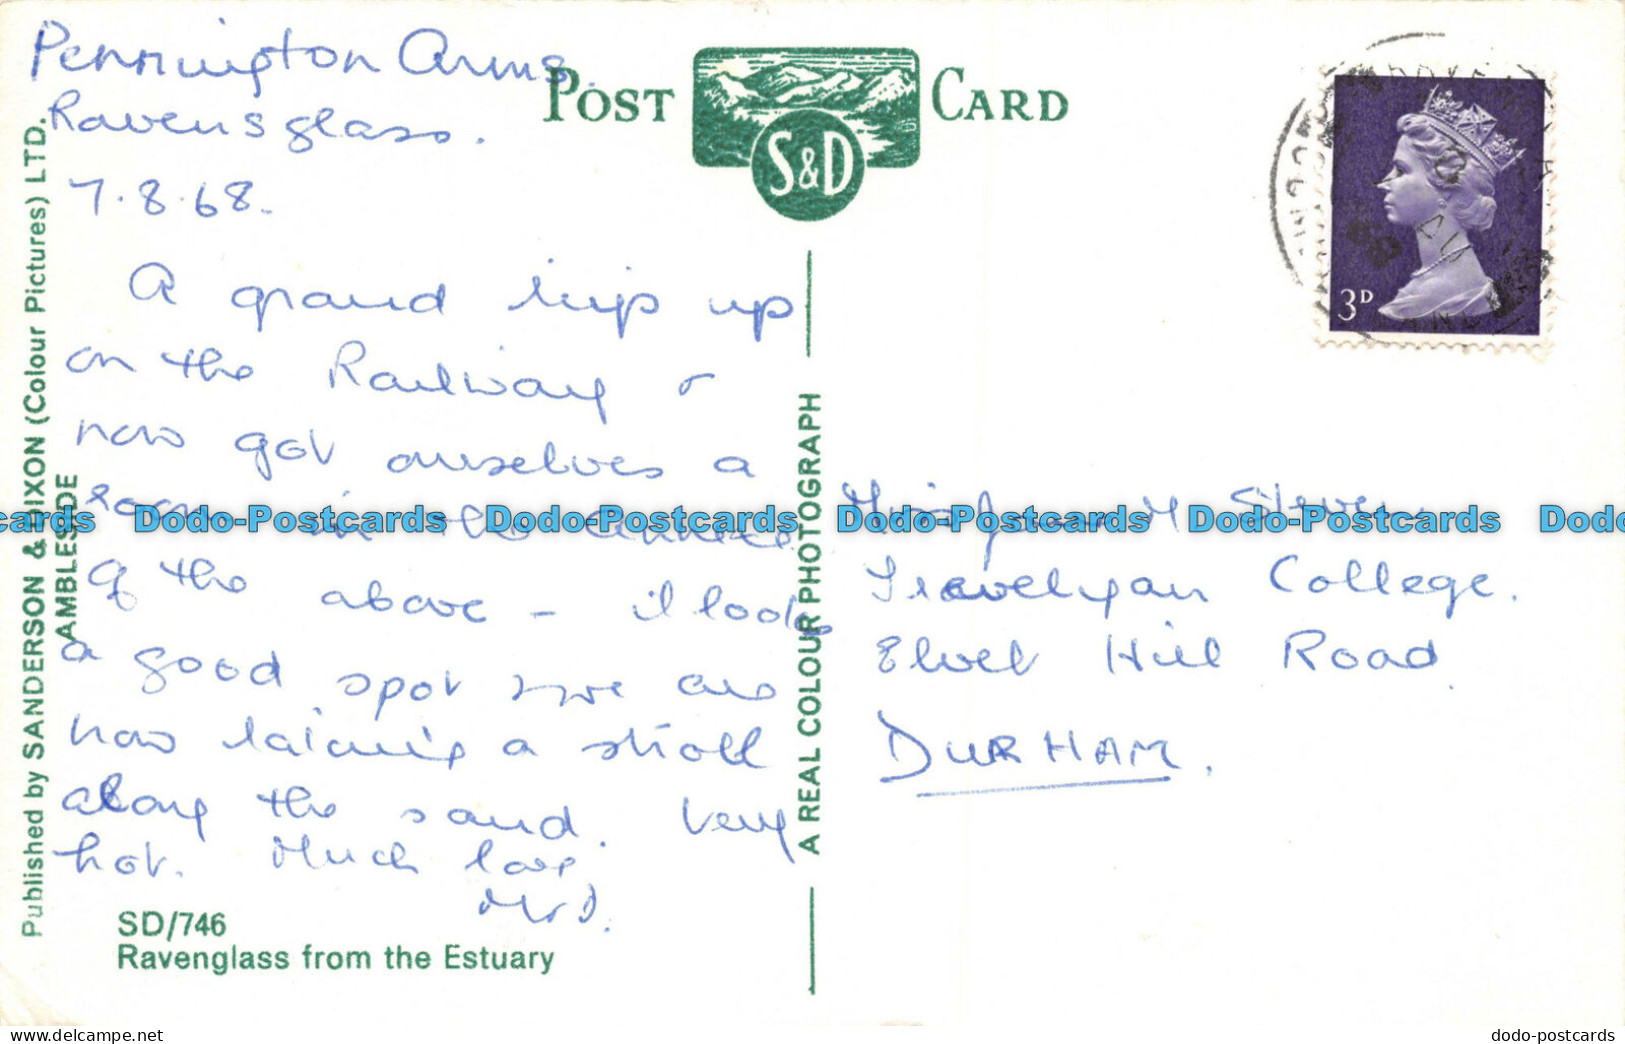 Pennington Arms.
Ravensglass.
7.8.68.
A grand trip up
on the Railway &
now got ourselves a
room in the annexe
of the above - it looks
a good spot & we are
now taking a stroll
along the sand. Very
hot. Much love
M & D.
POST CARD
S&D
3D
Miss M Steven
Trevelyan College.
Elvet Hill Road
DURHAM.
Published by SANDERSON & DIXON (Colour Pictures) LTD.
AMBLESIDE
A REAL COLOUR PHOTOGRAPH
SD/746
Ravenglass from the Estuary
cards Dodo-Postcards Dodo-Postcards Dodo-Postcards Dodo-Postcards Dodo
https://www.delcampe.net
dodo-postcards